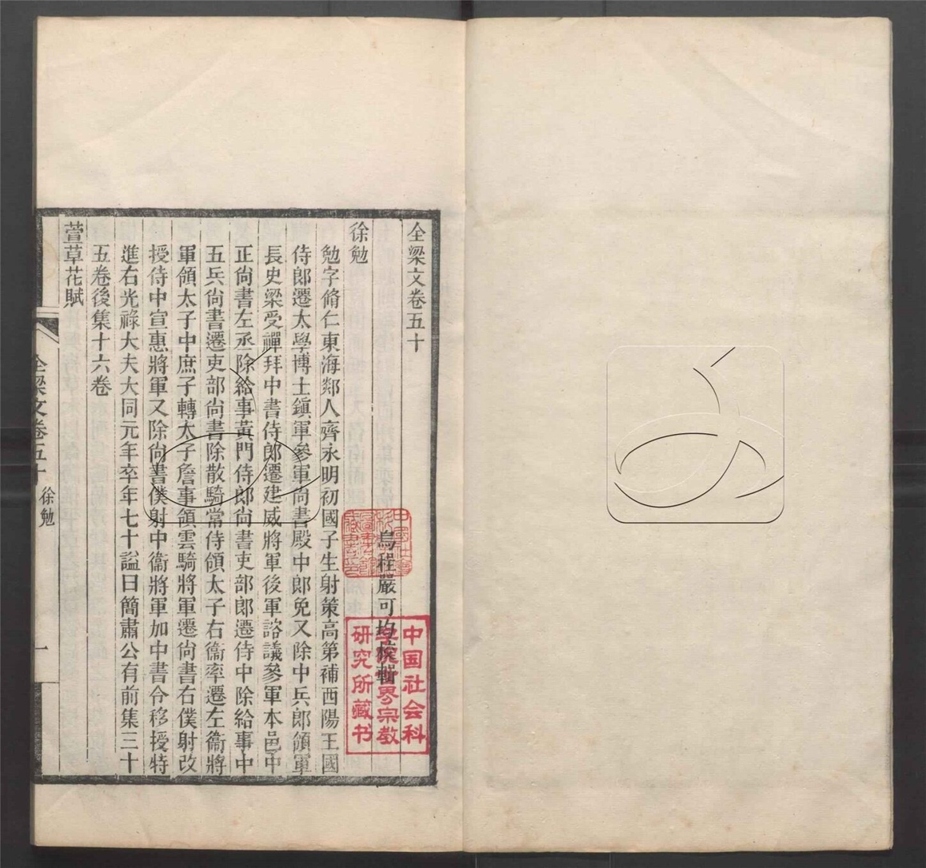 全梁文卷五十
烏程嚴可均校輯
徐勉
勉字脩仁東海郯人齊永明初國子生射策高第補西陽王國
侍郎遷太學博士鎮軍參軍尚書殿中郎免又除中兵郎領軍
長史梁受禪拜中書侍郎遷建威將軍後軍諮議參軍本邑中
正尚書左丞除給事黃門侍郎尚書吏部郎遷侍中除給事中
五兵尚書遷吏部尚書除散騎常侍領太子右衞率遷左衞將
軍領太子中庶子轉太子詹事領雲騎將軍遷尚書右僕射改
授侍中宣惠將軍又除尚書僕射中衞將軍加中書令移授特
進右光祿大夫大同元年卒年七十謚曰簡肅公有前集三十
五卷後集十六卷
萱草花賦
全梁文卷五十 徐勉
一
中国社会科
学院世界宗教
研究所藏书